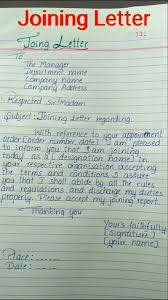 Joining Letter
Joing Letter
To
The Manager
Department name
Company name
Company Address
Respected Sir/Madam
Subject: Joining Letter regarding.
With reference to your appointment
order (order number, date) I am pleased
to inform you that I am joining
today as a (designation name) in
your respective organisation accepting
the terms and conditions. I assure
you that I shall abide by all the rules
and regulations and discharge my duties
properly. Please accept my joining report.
Thanking you
Your's faithfully
(signature)
(your name)
Place:
Date: